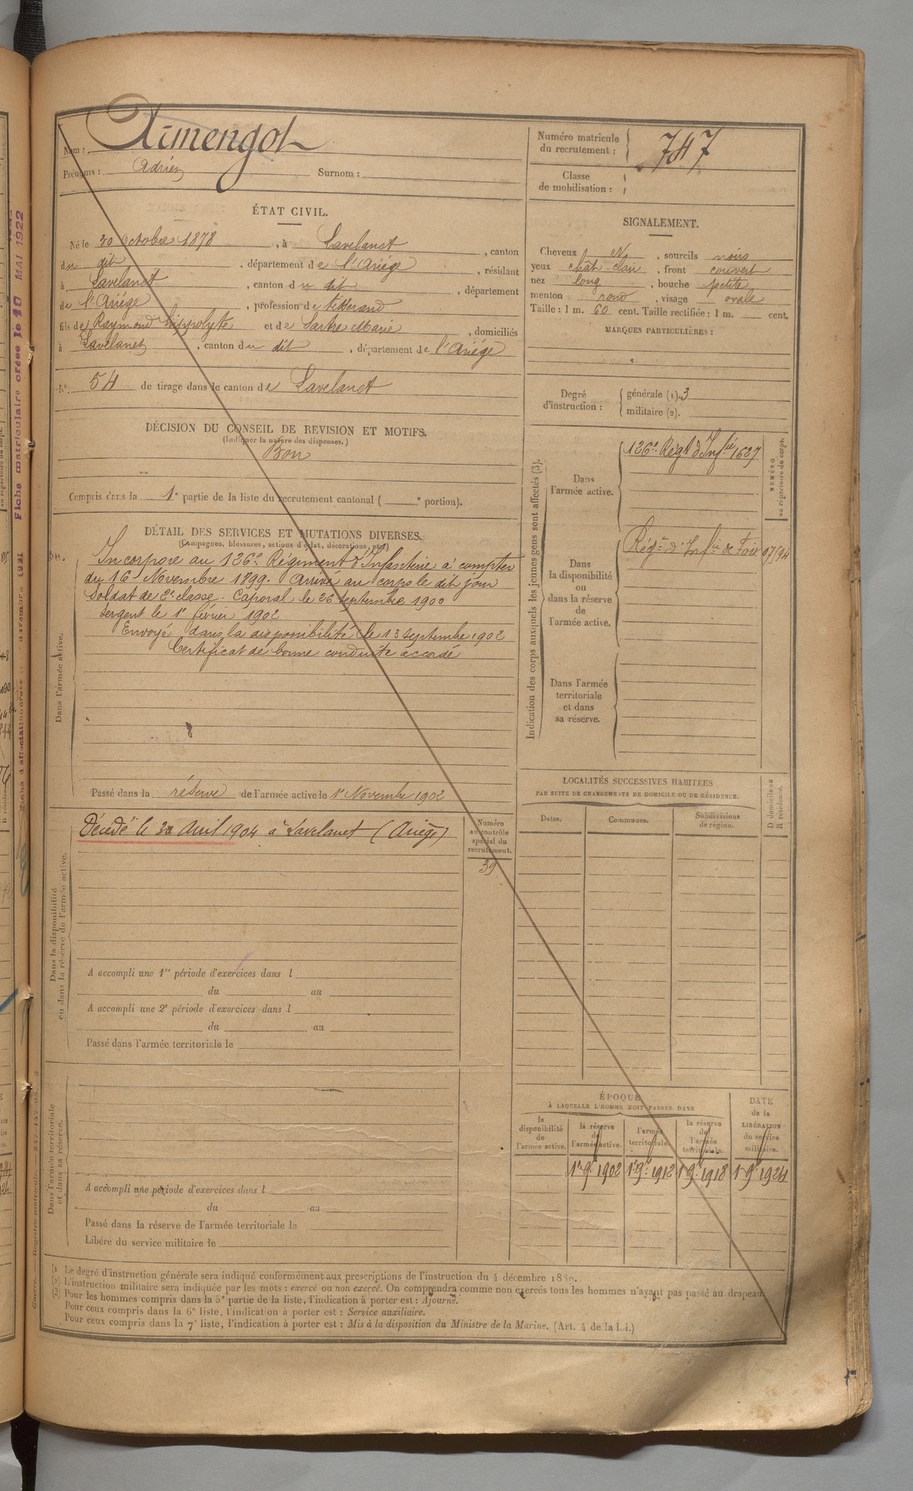 Nom : Aimengol
Prénoms : Adrien Surnom :
Numéro matricule du recrutement : 747
Classe de mobilisation :
ÉTAT CIVIL.
Né le 20 octobre 1878, à Lavelanet, canton
du dit, département de l'Ariège, résidant
à Lavelanet, canton du dit, département
de l'Ariège, profession de tisserand
fils de Raymond hippolyte et de Sartre Marie, domiciliés
à Lavelanet, canton du dit, département de l'Ariège
N° 54 de tirage dans le canton de Lavelanet
DÉCISION DU CONSEIL DE REVISION ET MOTIFS.
(Indiquer la nature des dispenses.)
Bon
Compris dans la 1e partie de la liste du recrutement cantonal ( e portion).
SIGNALEMENT.
Cheveux N, sourcils noirs
yeux chat. clair, front couvert
nez long, bouche petite
menton rond, visage ovale
Taille : 1 m. 60 cent. Taille rectifiée : 1 m. cent.
MARQUES PARTICULIÈRES :
Degré d'instruction : générale (1). 3
militaire (2).
DÉTAIL DES SERVICES ET MUTATIONS DIVERSES.
(Campagnes, blessures, actions d'éclat, décorations, etc.)
Dans l'armée active.
Incorporé au 136e Régiment d'Infanterie à compter
du 16 Novembre 1899. Arrivé au corps le dit jour
Soldat de 2e classe. Caporal le 22 septembre 1900
sergent le 1er février 1902
Envoyé dans la disponibilité le 13 septembre 1902
Certificat de bonne conduite accordé
Passé dans la réserve de l'armée active le 1er Novembre 1902
Indication des corps auxquels les jeunes gens sont affectés (3).
NUMÉRO au répertoire du corps.
Dans l'armée active.
136e Régt d'Infie 1627
Dans la disponibilité ou dans la réserve de l'armée active.
Régt d'Infie de Foix
Dans l'armée territoriale et dans sa réserve.
Dans la disponibilité ou dans la réserve de l'armée active.
Décédé le 22 Avril 1904 à Lavelanet (Ariège)
Numéro au contrôle spécial du recrutement.
39
A accompli une 1re période d'exercices dans l
du au
A accompli une 2e période d'exercices dans l
du au
Passé dans l'armée territoriale le
LOCALITÉS SUCCESSIVES HABITÉES
PAR SUITE DE CHANGEMENTS DE DOMICILE OU DE RÉSIDENCE.
Dates. Communes. Subdivisions de région. D domicile ou R résidence.
Dans l'armée territoriale et dans sa réserve.
A accompli une période d'exercices dans l
du au
Passé dans la réserve de l'armée territoriale le
Libéré du service militaire le
ÉPOQUE
À LAQUELLE L'HOMME DOIT PASSER DANS
la disponibilité de l'armée active.
la réserve de l'armée active.
l'armée territoriale.
la réserve de l'armée territoriale.
DATE de la LIBÉRATION du service militaire.
1er 9bre 1902 1er 9bre 1912 1er 9bre 1918 1er 9bre 1924
(1) Le degré d'instruction générale sera indiqué conformément aux prescriptions de l'instruction du 4 décembre 1889.
(2) L'instruction militaire sera indiquée par les mots : exercé ou non exercé. On comprendra comme non exercés tous les hommes n'ayant pas passé au drapeau.
(3) Pour les hommes compris dans la 5e partie de la liste, l'indication à porter est : Ajourné.
Pour ceux compris dans la 6e liste, l'indication à porter est : Service auxiliaire.
Pour ceux compris dans la 7e liste, l'indication à porter est : Mis à la disposition du Ministre de la Marine. (Art. 4 de la Loi.)
Fiche matriculaire créée le 10 MAI 1922